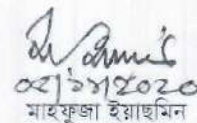 ০২/১১/২০২০
মাহফুজা ইয়াছমিন